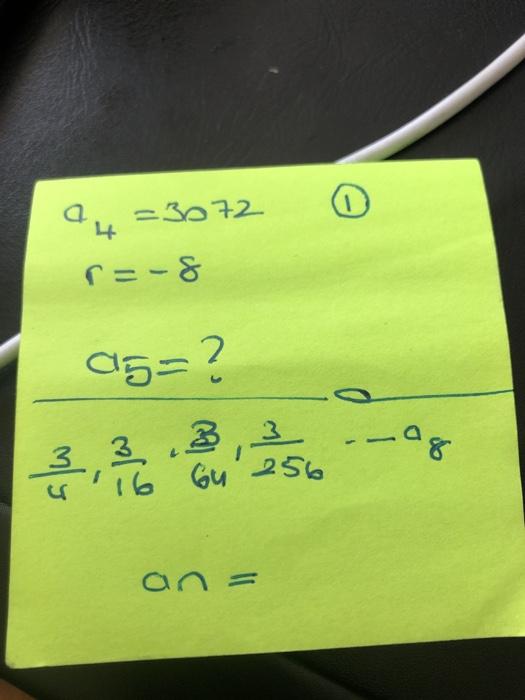 a4 = 3072 ①
r = -8
a5 = ?
3/4, 3/16, 3/64, 3/256 --- a8
an =